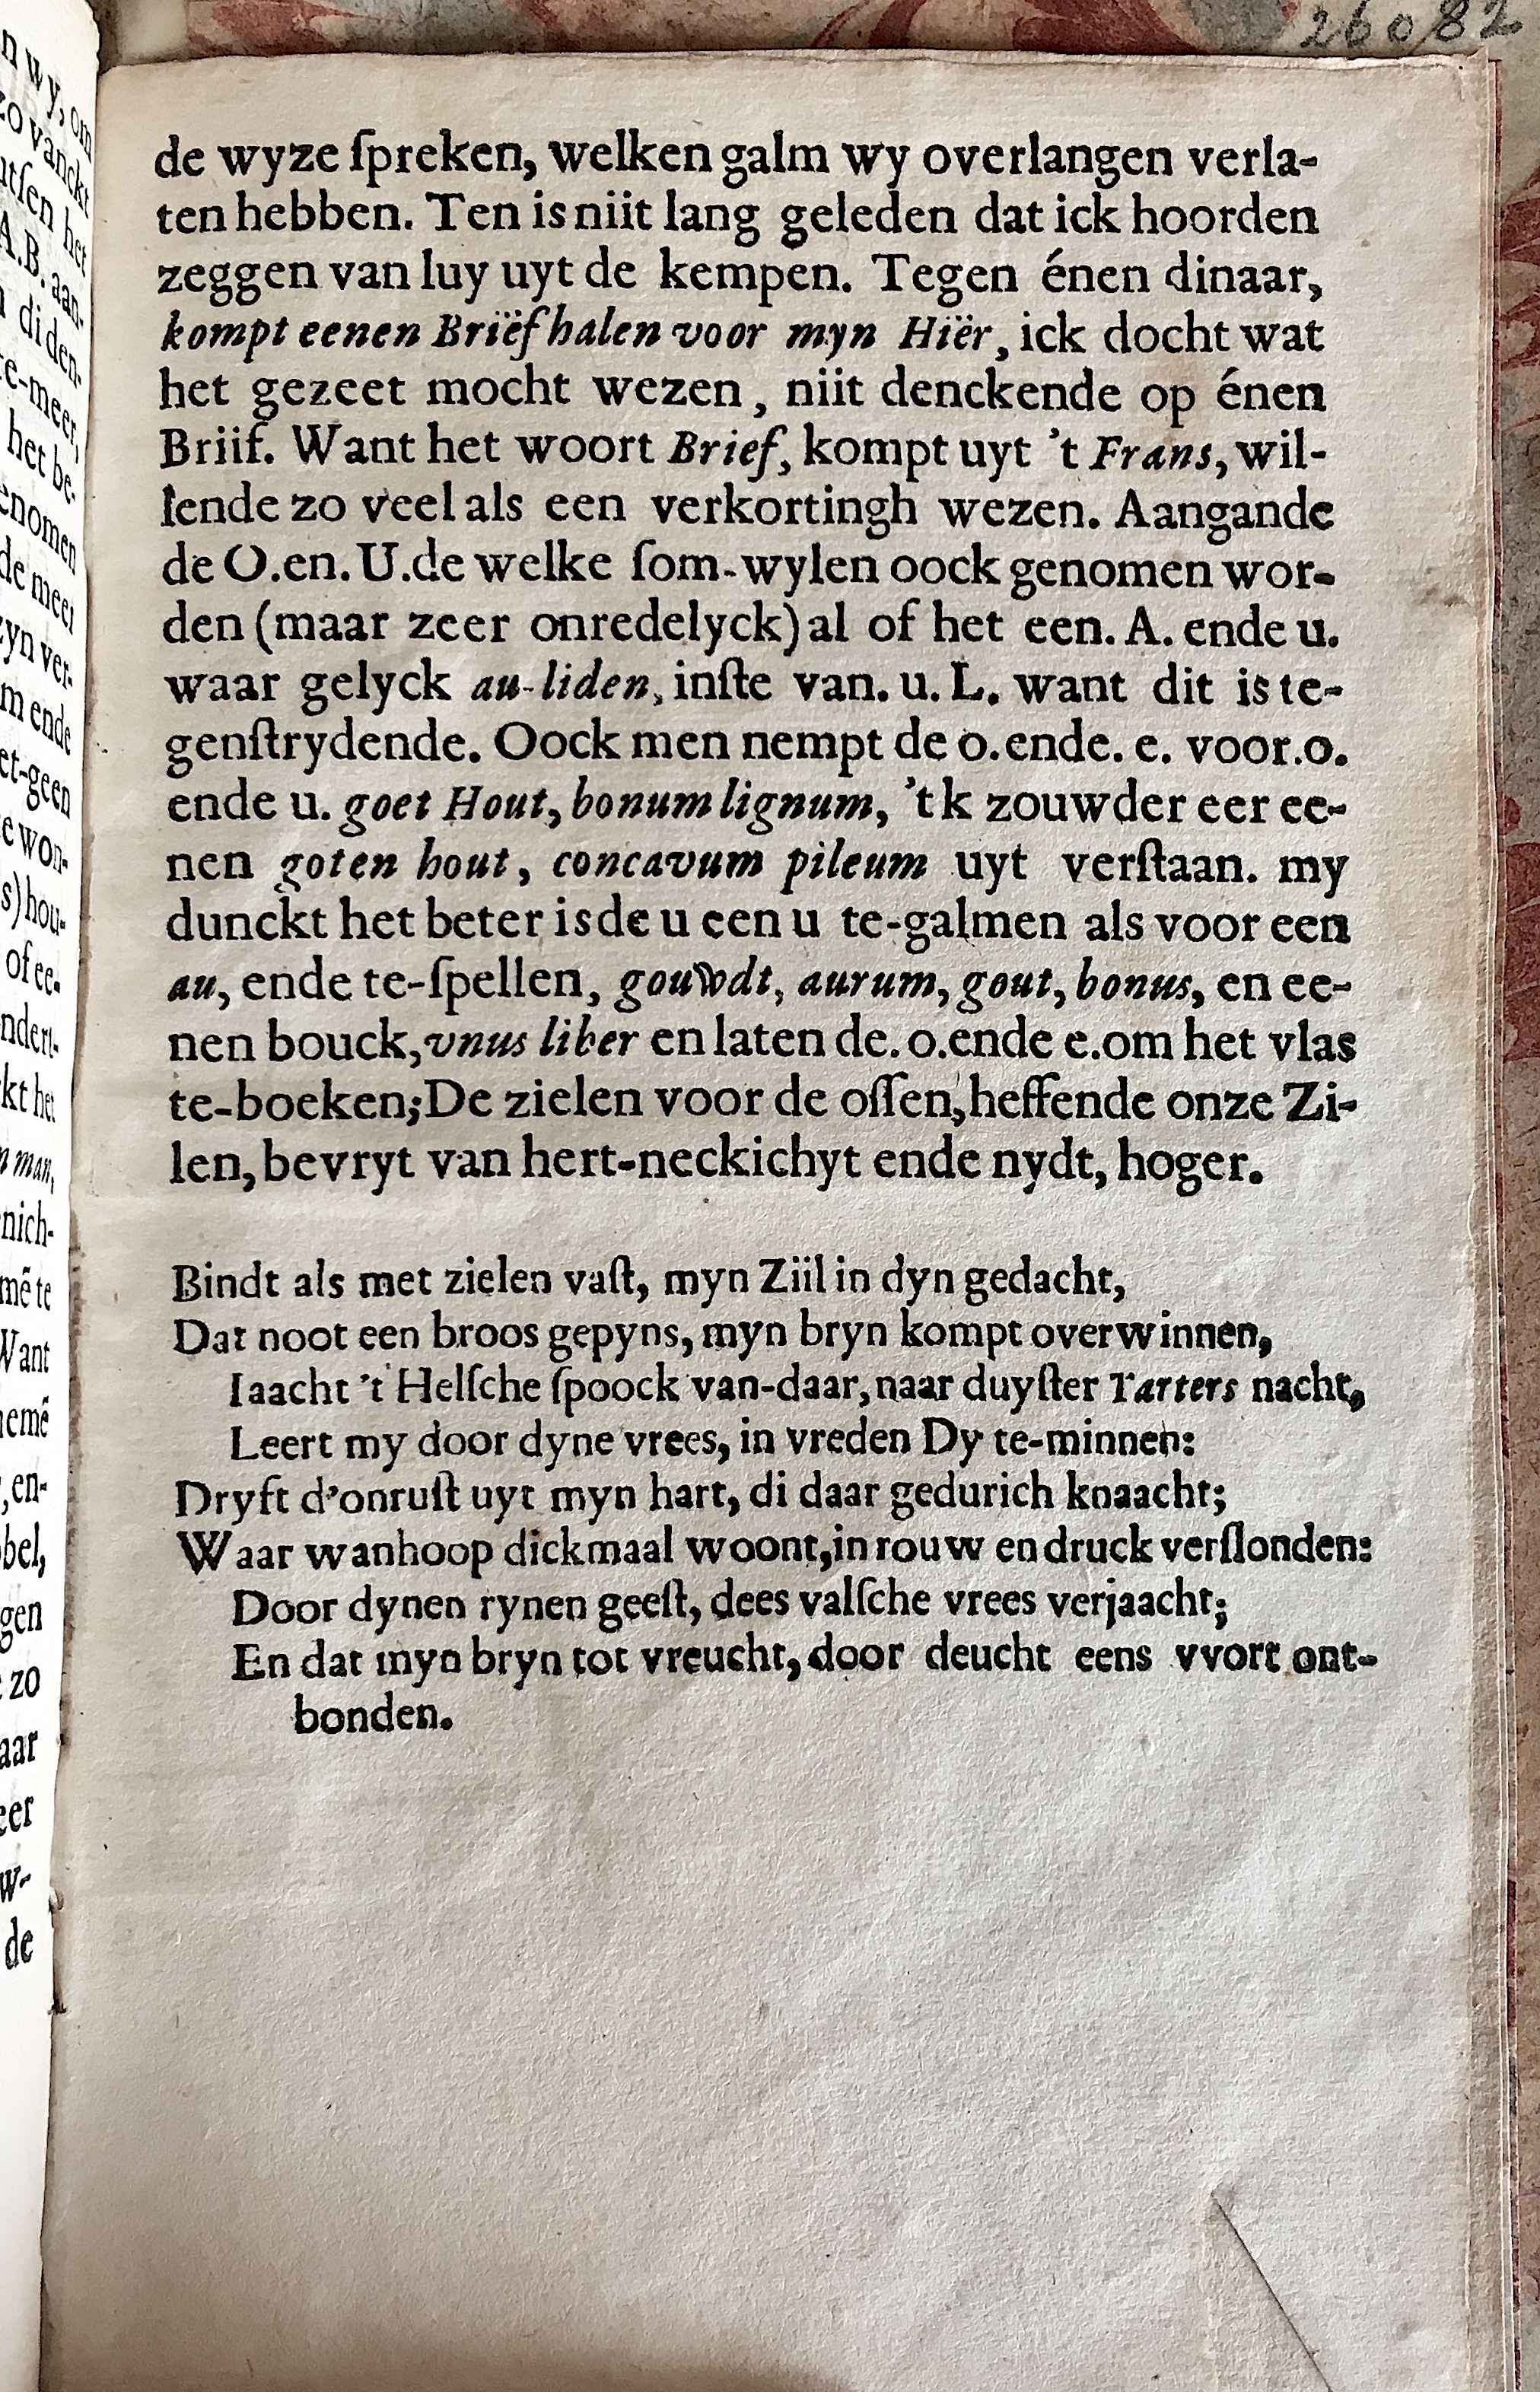 26082
de wyze ſpreken, welken galm wy overlangen verla-
ten hebben. Ten is niit lang geleden dat ick hoorden
zeggen van luy uyt de kempen. Tegen énen dinaar,
kompt eenen Briëf halen voor myn Hiër, ick docht wat
het gezeet mocht wezen, niit denckende op énen
Briif. Want het woort Brief, kompt uyt 't Frans, wil-
lende zo veel als een verkortingh wezen. Aangande
de O.en. U.de welke ſom-wylen oock genomen wor-
den (maar zeer onredelyck) al of het een. A. ende u.
waar gelyck au-liden, inſte van. u. L. want dit is te-
genſtrydende. Oock men nempt de o.ende. e. voor.o.
ende u. goet Hout, bonum lignum, 't k zouwder eer ee-
nen goten hout, concavum pileum uyt verſtaan. my
dunckt het beter is de u een u te-galmen als voor een
au, ende te-ſpellen, gouwdt, aurum, gout, bonus, en ee-
nen bouck, vnus liber en laten de. o.ende e.om het vlas
te-boeken; De zielen voor de oſſen, heffende onze Zi-
len, bevryt van hert-neckichyt ende nydt, hoger.
Bindt als met zielen vaſt, myn Ziil in dyn gedacht,
Dat noot een broos gepyns, myn bryn kompt overwinnen,
Iaacht 't Helſche ſpoock van-daar, naar duyſter Tarters nacht,
Leert my door dyne vrees, in vreden Dy te-minnen:
Dryft d'onruſt uyt myn hart, di daar gedurich knaacht;
Waar wanhoop dickmaal woont, in rouw en druck verſlonden:
Door dynen rynen geeſt, dees valſche vrees verjaacht;
En dat myn bryn tot vreucht, door deucht eens vvort ont-
bonden.